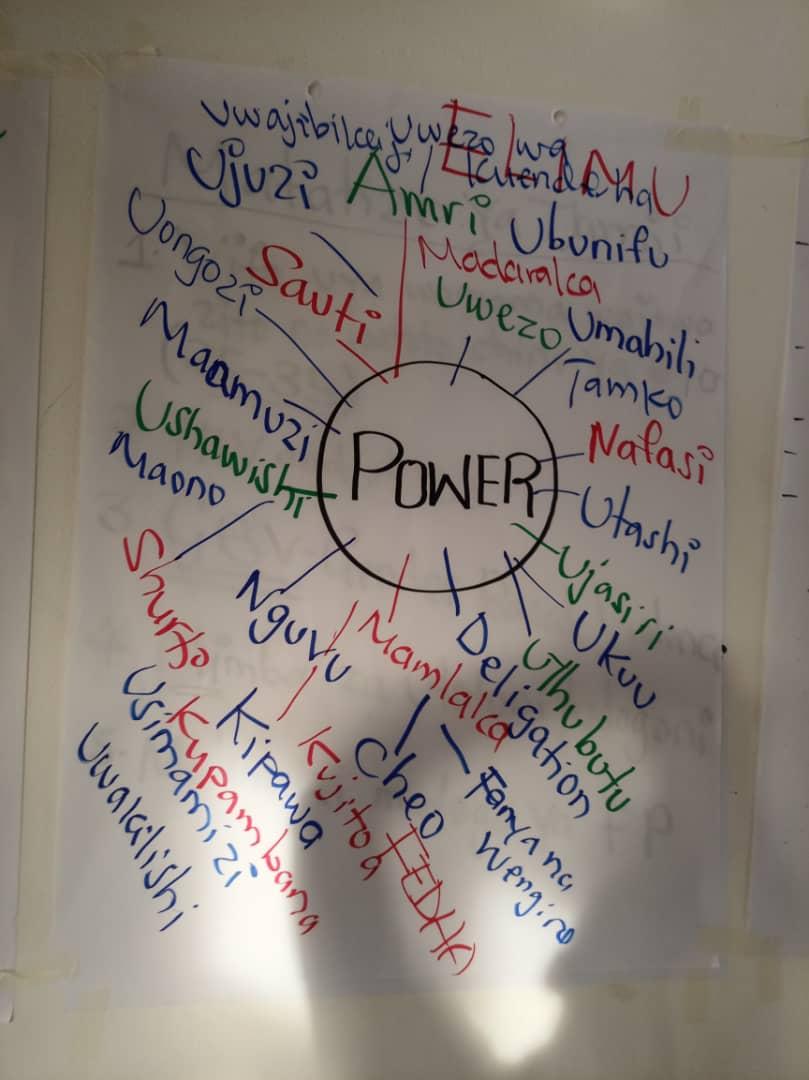 Uwajibikaji
Uwezo wa
Kutendeka
ELIMU
Ujuzi
Amri
Ubunifu
Uongozi
Sauti
Madaraka
Uwezo
Umahili
Maamuzi
Tamko
Ushawishi
POWER
Nafasi
Maono
Utashi
Shurto
Nguvu
Mamlaka
Deligation
Ujasiri
Ukuu
Uthubutu
Usimamizi
Kupambana
Kipawa
Kujitoa
Cheo
Uwakilishi
FEDHA